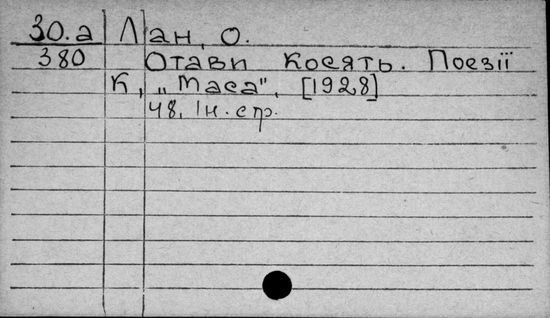 30.а Лан, О.
380 Отави косять. Поезії
К, „Маса", [1928]
48, Ін. стр.